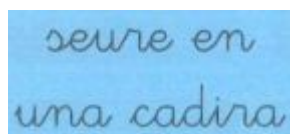 seure en
una cadira